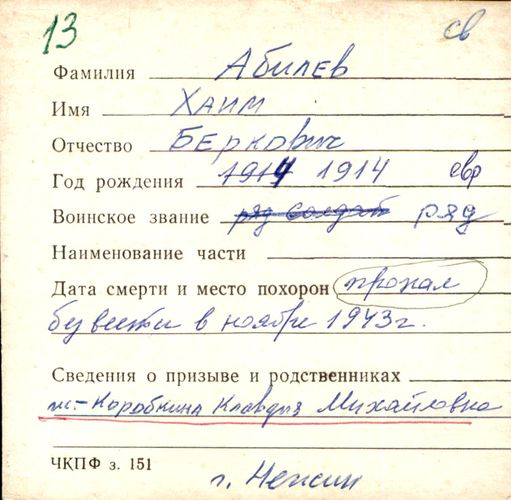 13
св
Фамилия Абилев
Имя Хаим
Отчество Беркович
Год рождения 1914 1914 евр
Воинское звание ряд солдат ряд
Наименование части
Дата смерти и место похорон пропал
без вести в ноябре 1943 г.
Сведения о призыве и родственниках
ж.- Коробкина Клавдия Михайловна
ЧКПФ з. 151
г. Нежин